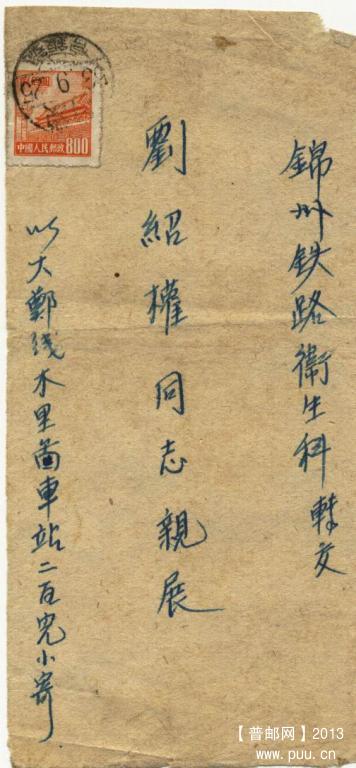 錦州铁路衛生科轉交
劉紹權同志親展
大鄭綫木里啚車站二百
小寄
中國人民郵政
800
【普邮网】2013
www.puu.cn